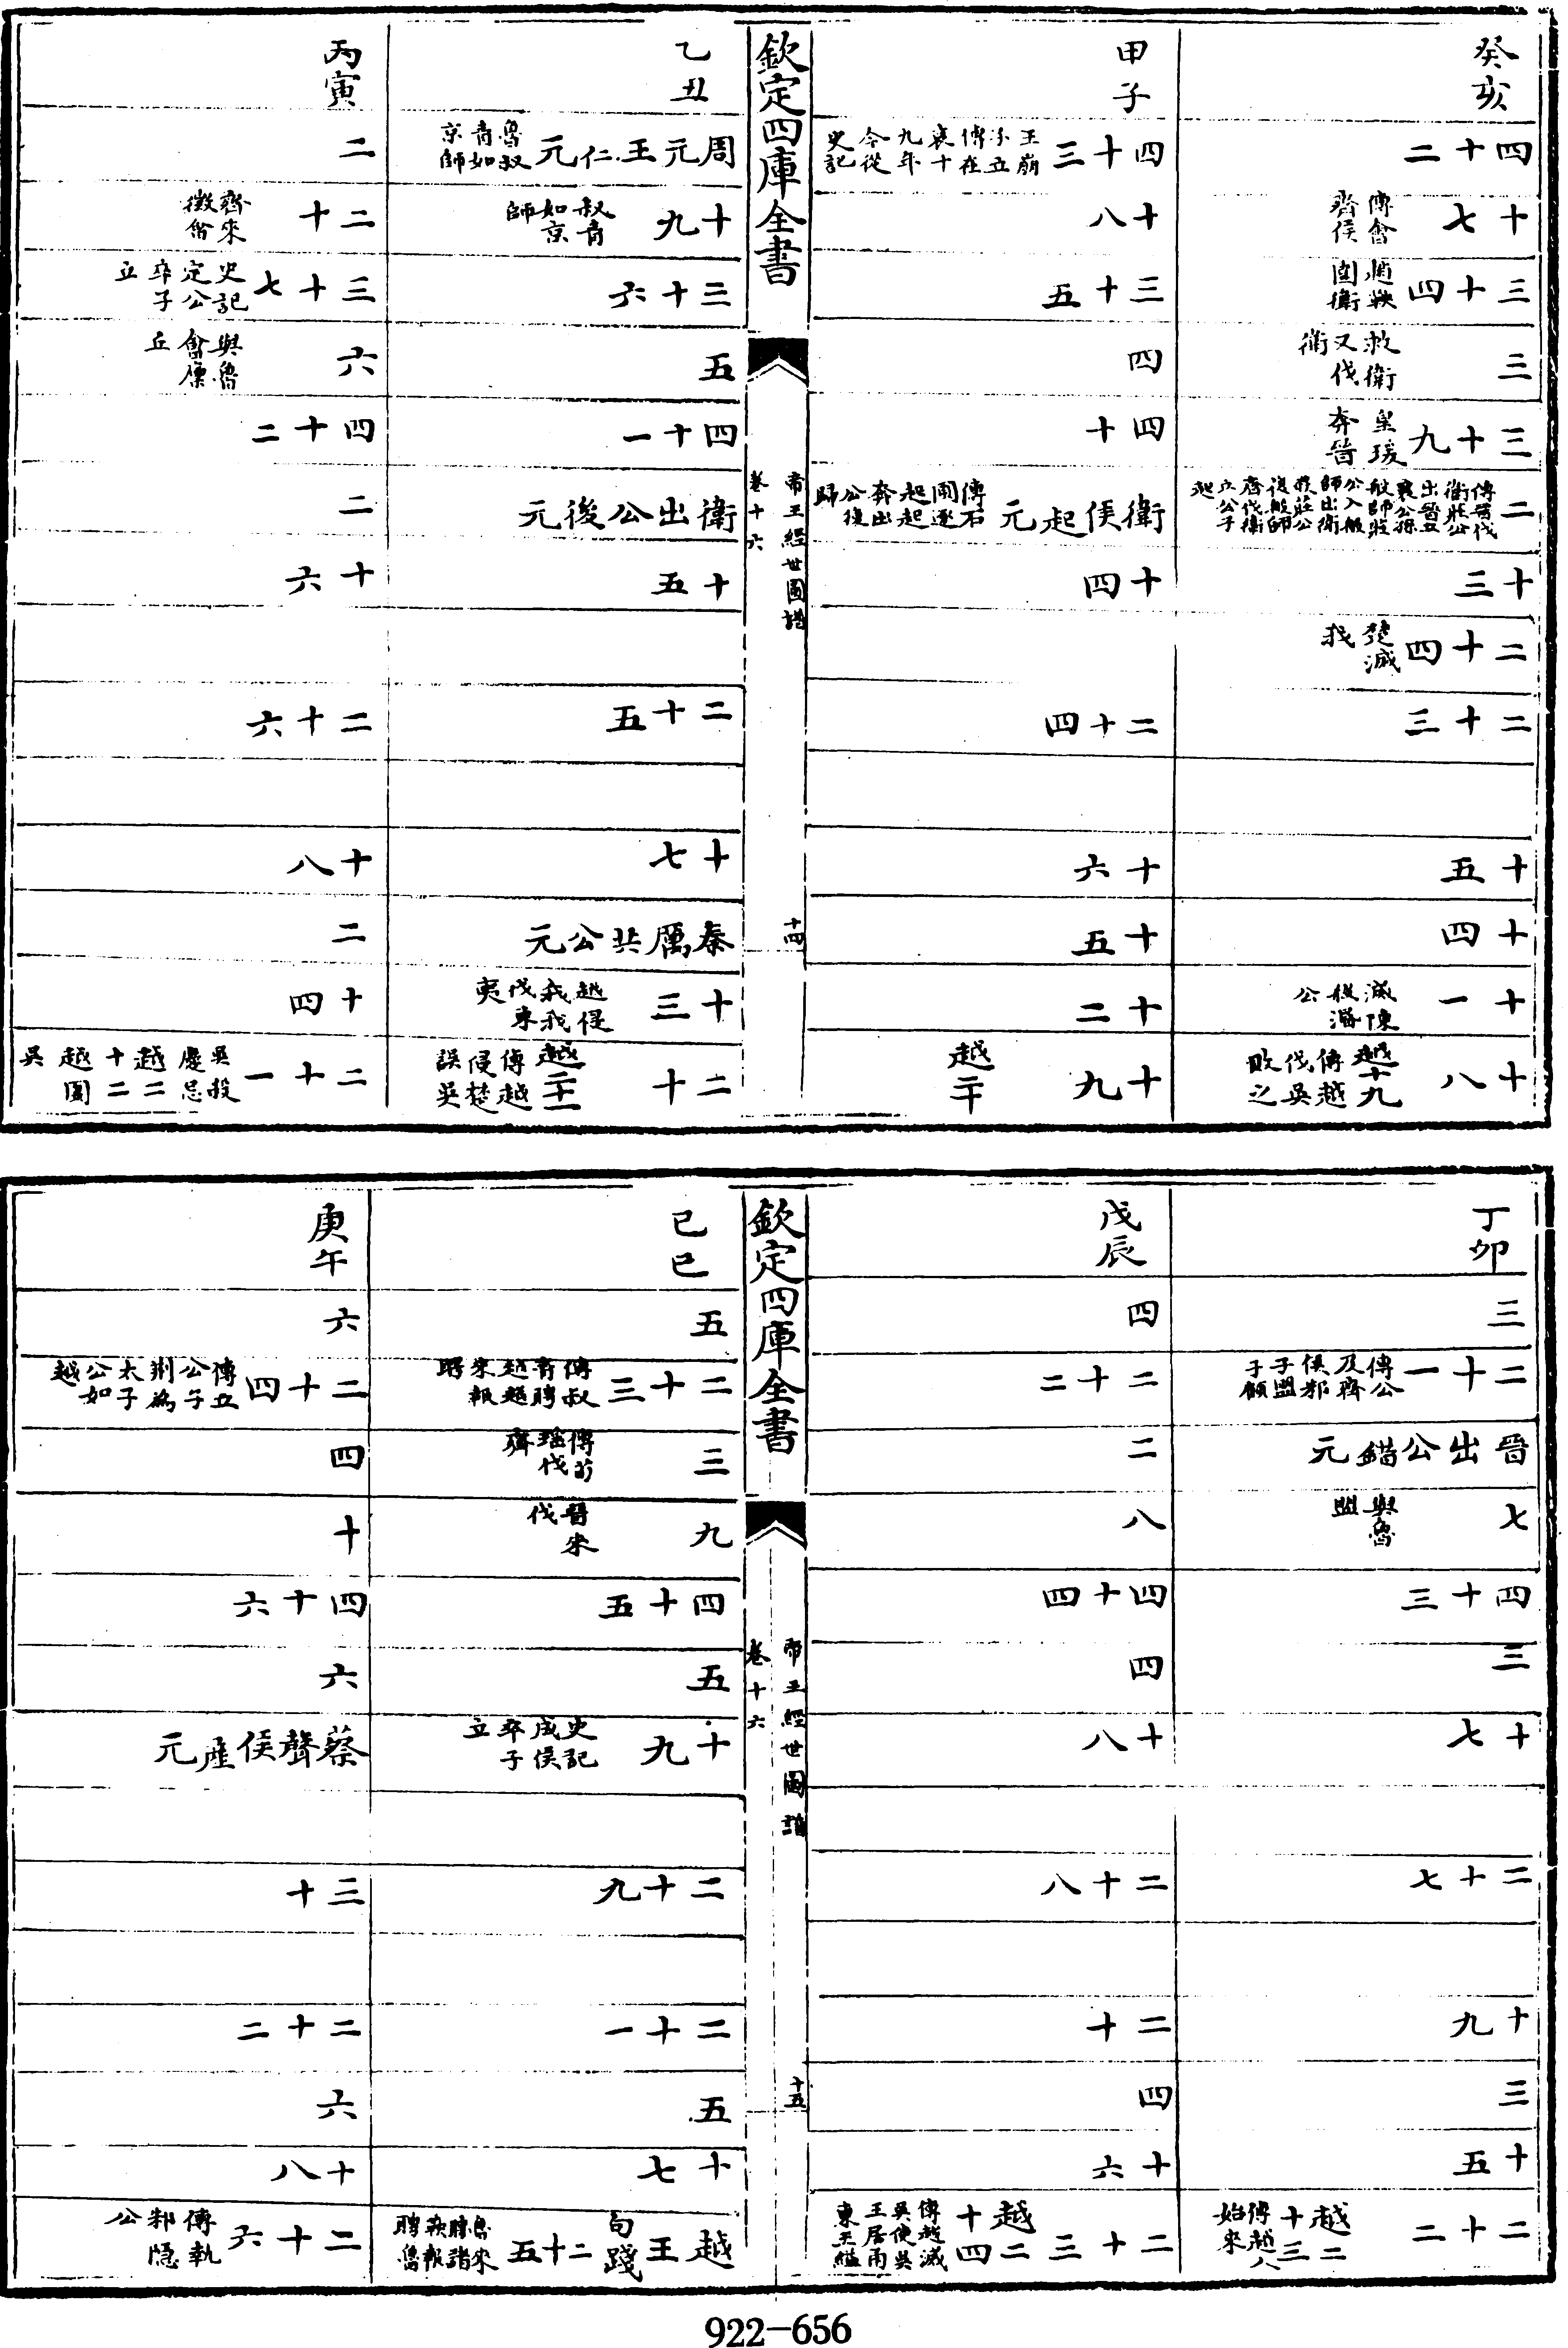 癸亥
四十二
十七 傳會齊侯
三十四 趙鞅圍衛
三 救衛又伐衛
三十九 皇瑗奔晉
二 傳晉伐衛莊公出晉立襄公孫般師莊公入般師出衛弒莊公復般師齊伐衛立公子起
十三
二十四 楚滅我
二十三
十五
十四
十一 滅陳殺湣公
十八 越十九 傳越伐吳敗之
甲子
四十三 王崩子立傳在哀十九年今從史記
十八
三十五
四
四十
衛侯起元 傳石圃逐起起奔出公復歸
十四
二十四
十六
十五
十二
十九 越二十
欽定四庫全書
帝王經世圖譜
卷十六
十四
乙丑
周元王仁元 魯叔青如京師
十九 叔青如京師
三十六
五
四十一
衛出公後元
十五
二十五
十七
秦厲共公元
十三 越侵我我伐東夷
二十 越二十一 傳越侵楚誤吳
丙寅
二
二十 齊來徵會
三十七 史記定公卒子立
六 與魯會廩丘
四十二
二
十六
二十六
十八
二
十四
二十一 吳殺慶忌越二十二越圍吳
丁卯
三
二十一 傳公及齊侯邾子盟于顧
晉出公錯元
七 與魯盟
四十三
三
十七
二十七
十九
三
十五
二十二 越二十三 傳越人始來
戊辰
四
二十二
二
八
四十四
四
十八
二十八
二十
四
十六
二十三 越二十四 傳越滅吳使吳王居甬東王縊
欽定四庫全書
帝王經世圖譜
卷十六
十五
己巳
五
二十三 傳叔青聘越越來報聘
三 傳荀瑤伐齊
九 晉來伐
四十五
五
十九 史記成侯卒子立
二十九
二十一
五
十七
越王句踐二十五 魯來聘諸鞅報聘魯
庚午
六
二十四 傳立公子荊為太子公如越
四
十
四十六
六
蔡聲侯產元
三十
二十二
六
十八
二十六 傳執邾隱公
922-656